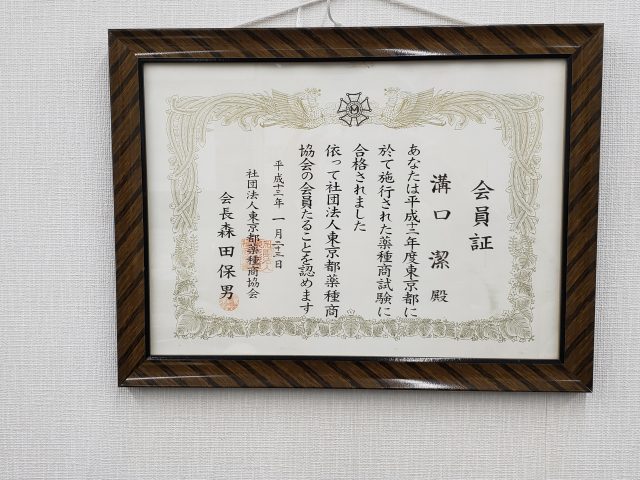 会員証
溝口潔殿
あなたは平成十二年度東京都に
於て施行された薬種商試験に
合格されました
依って社団法人東京都薬種商
協会の会員たることを認めます
平成十三年一月二十三日
社団法人東京都薬種商協会
会長森田保男
M